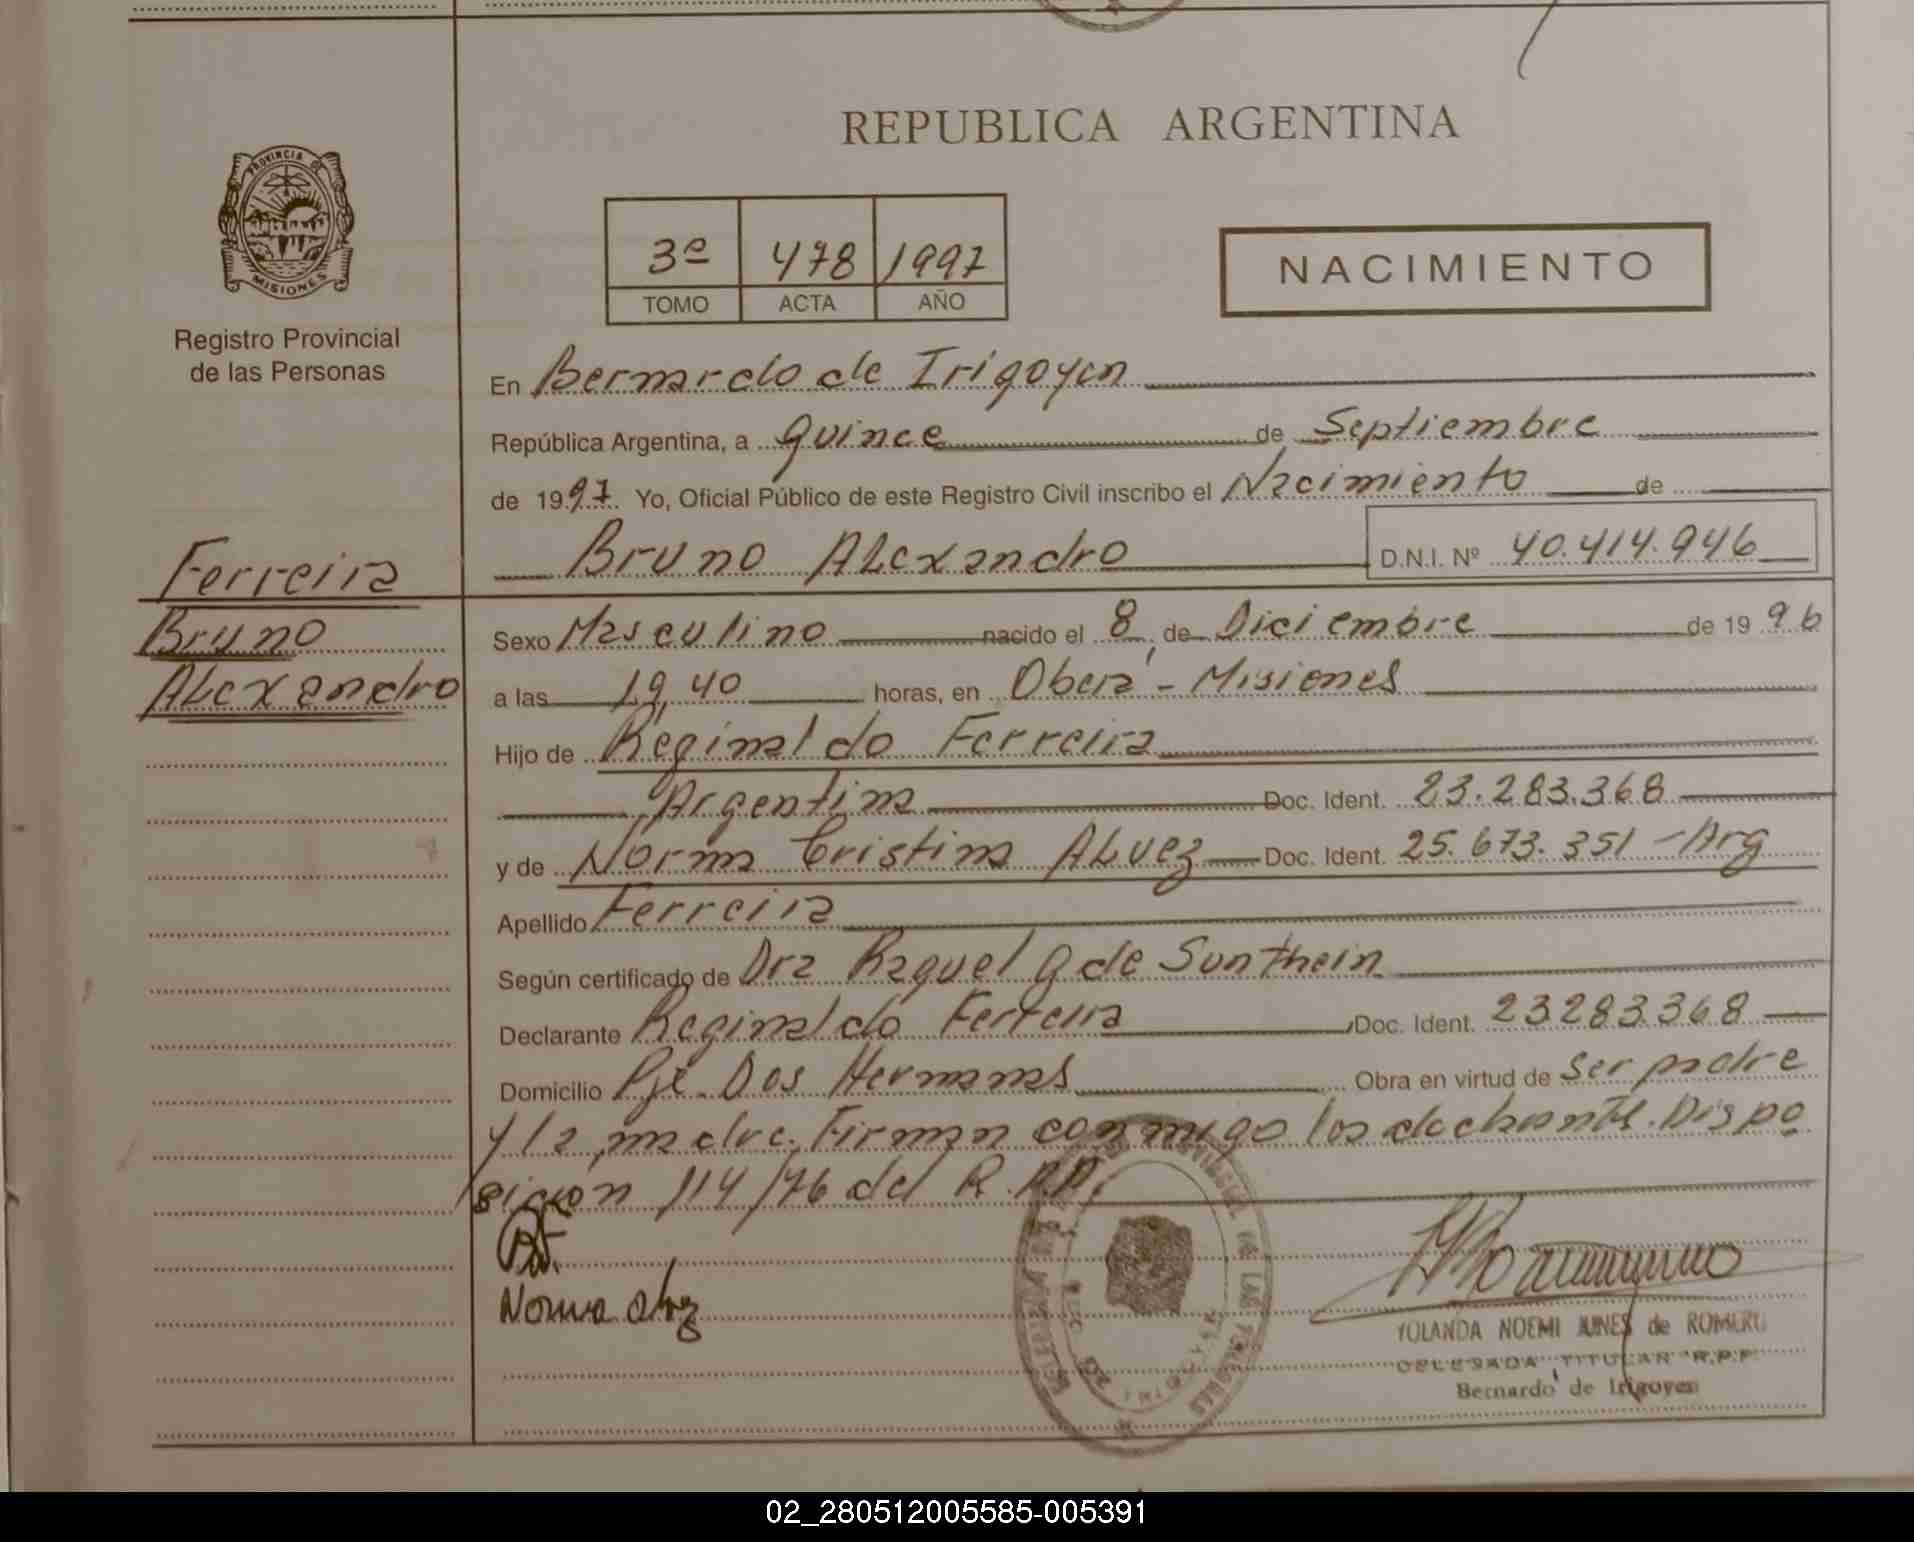 REPUBLICA ARGENTINA
PROVINCIA DE
MISIONES
Registro Provincial
de las Personas
3º 478 1997
TOMO ACTA AÑO
NACIMIENTO
En Bernardo de Irigoyen
República Argentina, a quince de Septiembre
de 1997. Yo, Oficial Público de este Registro Civil inscribo el Nacimiento de
Bruno ALexandro D.N.I. Nº 40.414.946
Ferreira
Bruno
ALexandro
Sexo Masculino nacido el 8, de Diciembre de 1996
a las 19,40 horas, en Oberá - Misiones
Hijo de Reginaldo Ferreira
Argentina Doc. Ident. 23.283.368
y de Norma Cristina ALvez Doc. Ident. 25.673.351 - Arg
Apellido Ferreira
Según certificado de Dra Raquel G de Sunthein
Declarante Reginaldo Ferreira Doc. Ident. 23283.368
Domicilio Pje. Dos Hermanas Obra en virtud de Ser padre
y la madre. Firman conmigo los declarantes. Dispo
sicion 114/76 del R.P.P.
RF.
Norma alvez
YOLANDA NOEMI JUNES de ROMERO
DELEGADA TITULAR R.P.P.
Bernardo de Irigoyen
02_280512005585-005391